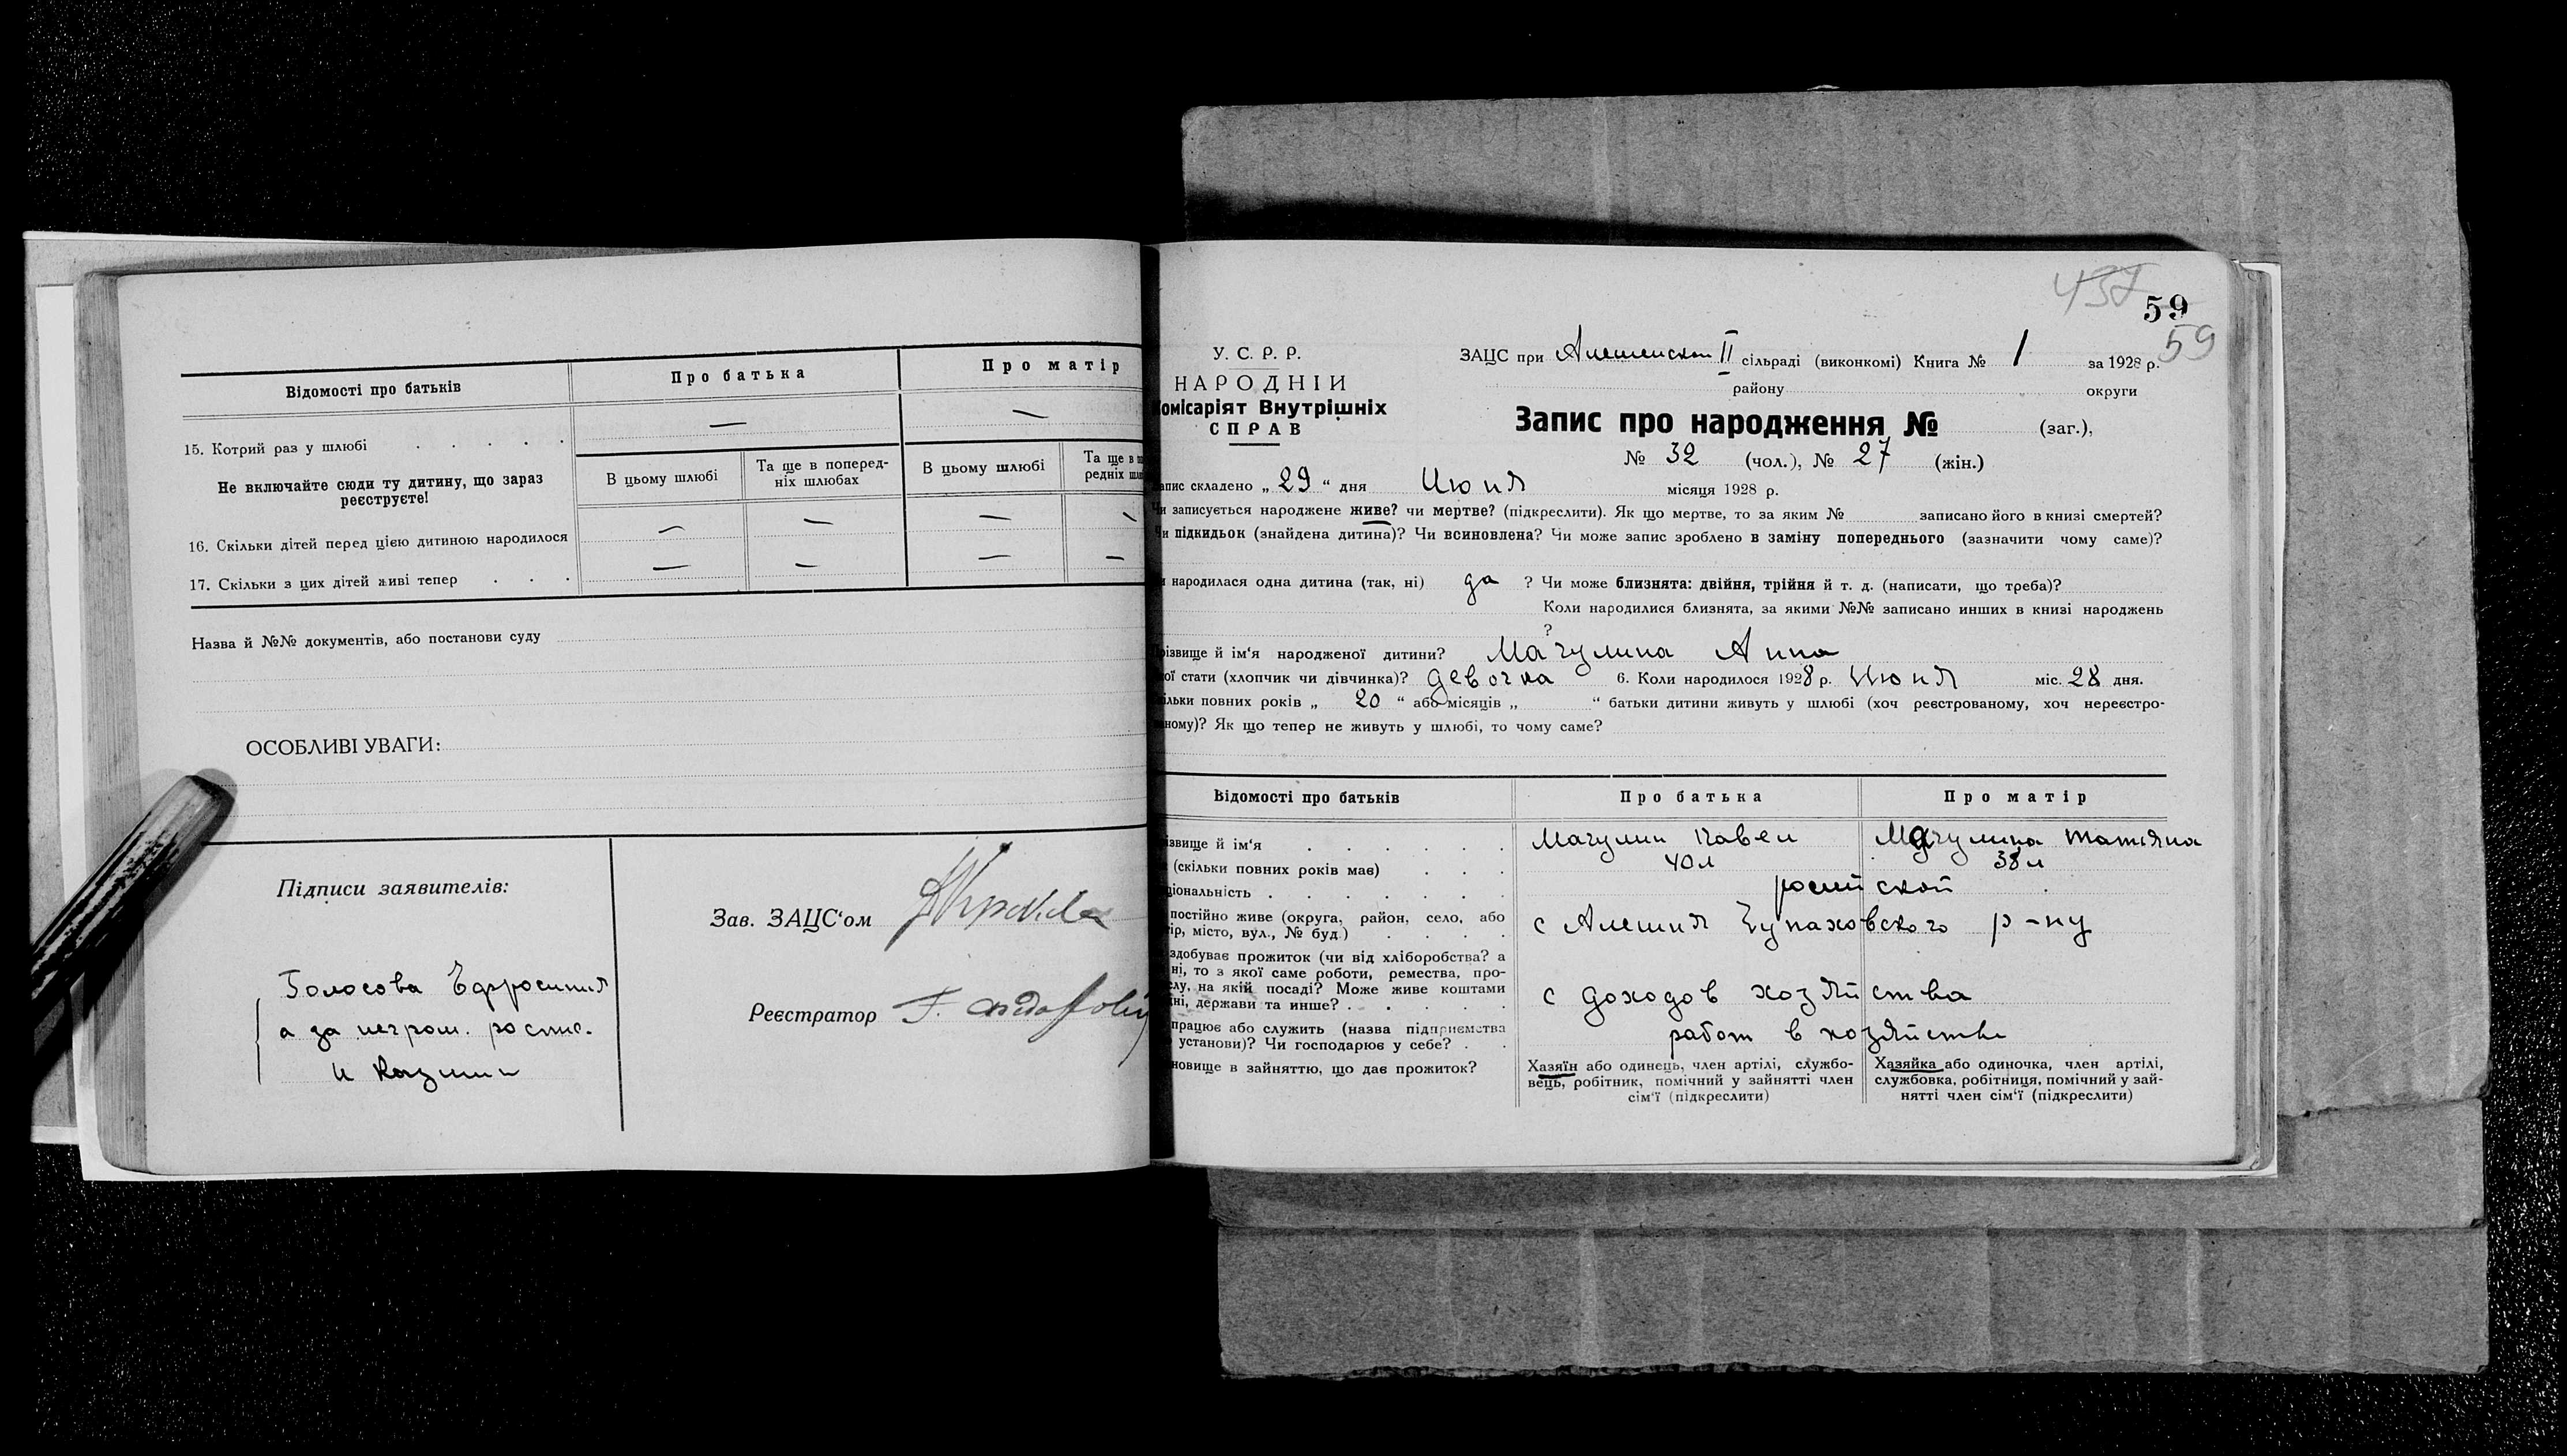 Відомості про батьків
Про батька
Про матір
15. Котрий раз у шлюбі
—
—
Не включайте сюди ту дитину, що зараз
реєструєте!
В цьому шлюбі
Та ще в поперед-
ніх шлюбах
В цьому шлюбі
Та ще в
редніх
16. Скільки дітей перед цією дитиною народилося
— — —
17. Скільки з цих дітей живі тепер
— — — —
Назва й №№ документів, або постанови суду
ОСОБЛИВІ УВАГИ:
Підписи заявителів:
Голосова Ефросиния
а за неграм. роспис.
И Казимин
Зав. ЗАЦС‘ом
Реєстратор
437
59
59
У. С. Р. Р.
НАРОДНІЙ
Комісаріят Внутрішніх
СПРАВ
ЗАЦС при Алешенском II сільраді (виконкомі) Книга № 1 за 1928 р.
району округи
Запис про народження № (заг.),
№ 32 (чол.), № 27 (жін.)
апис складено „ 29 “ дня Июня місяця 1928 р.
и записується народжене живе? чи мертве? (підкреслити). Як що мертве, то за яким № записано його в книзі смертей?
и підкидьок (знайдена дитина)? Чи всиновлена? Чи може запис зроблено в заміну попереднього (зазначити чому саме)?
и народилася одна дитина (так, ні) да ? Чи може близнята: двійня, трійня й т. д. (написати, що треба)?
Коли народилися близнята, за якими №№ записано инших в книзі народжень
?
різвище й ім‘я народженої дитини? Мачулина Анна
ої стати (хлопчик чи дівчинка)? девочка 6. Коли народилося 1928 р. Июня міс. 28 дня.
ільки повних років „ 20 “ або місяців „ “ батьки дитини живуть у шлюбі (хоч реєстрованому, хоч нереєстро-
ному)? Як що тепер не живуть у шлюбі, то чому саме?
Відомості про батьків
Про батька
Про матір
ізвище й ім‘я
Мачулин Павел
Мачулина Татяна
(скільки повних років має)
40 л
38 л
ціональність
росийской
постійно живе (округа, район, село, або
ір, місто, вул., № буд.)
с Алешня Чупаховского р-ну
здобуває прожиток (чи від хліборобства? а
ні, то з якої саме роботи, ремества, про-
слу, на якій посаді? Може живе коштами
ні, держави та инше?
с доходов хозяйства
працює або служить (назва підприємства
установи)? Чи господарює у себе?
работ в хозяйстве
новище в зайняттю, що дає прожиток?
Хазяїн або одинець, член артілі, службо-
вець, робітник, помічний у зайнятті член
сім‘ї (підкреслити)
Хазяйка або одиночка, член артілі,
службовка, робітниця, помічний у зай-
нятті член сім‘ї (підкреслити)